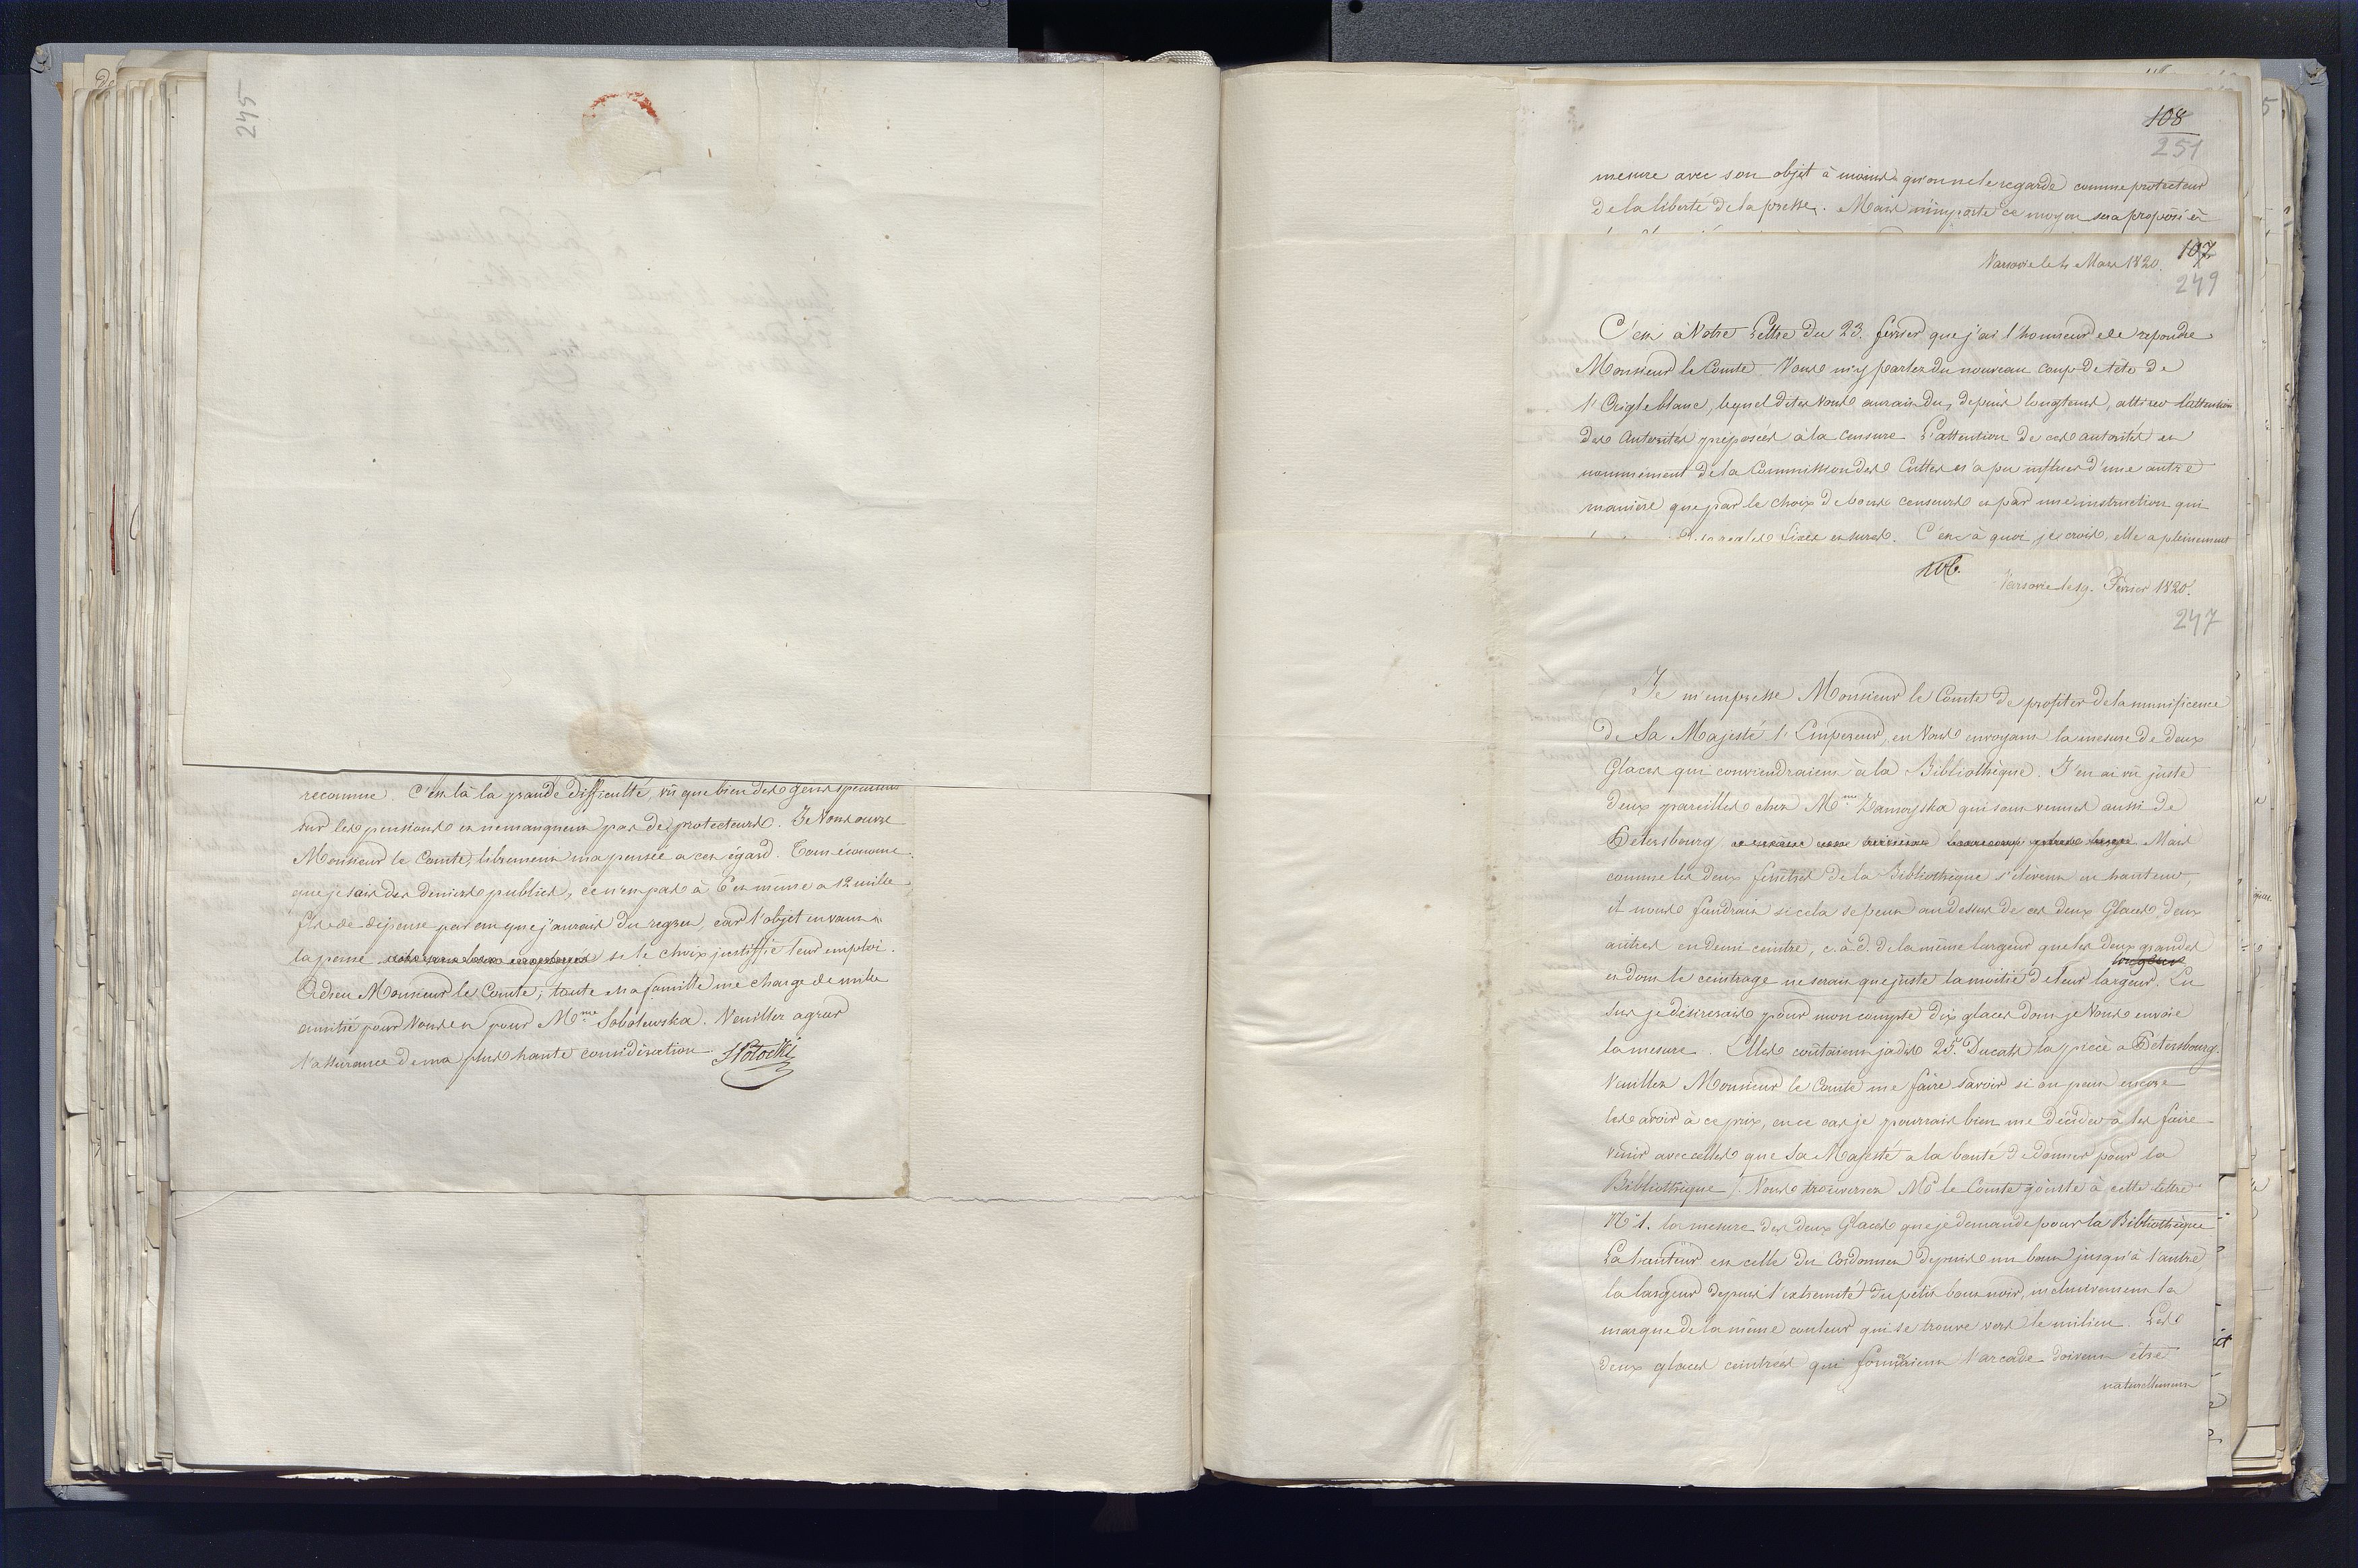 245
reconnue. C'est là la grande difficulté, vû que bien des gens
sur les pensions et ne manquent pas de protecteurs. Je Vous ouvre
Monsieur le Comte, librement ma pensée a cet égard. Tout économe
que je sais des deniers publics, ce n'est pas à 6 et même a 12 mille
de dépense par an que j'aurais du regret, car l'objet en vaut
la peine si le choix justiffie leur emploi.
Adieu Monsieur le Comte; toute ma famille me charge de mille
amitié pour Vous et pour Mme Sobolewska. Veuillez agréer
l'assurance de ma plus haute considération SPotocki
108
251
mesure avec son objet à moins qu'on ne le regarde comme protecteur
de la liberté de la presse. Mais n'importe ce moyen sera proposé et
Varsovie le 4 Mars 1820.
107
249
C'est à Votre Lettre du 23. fevrier que j'ai l'honneur de repondre
Monsieur le Comte. Vous m'y parlez du nouveau coup de tête de
l'Aigle blanc, lequel dites Vous aurait du, depuis longtems, attirer l'attention
des Autorités préposées à la censure. L'attention de ces autorités et
nommément de la Commission des Cultes n'a pu influer d'une autre
manière que par le choix de bons censeurs et par une instruction qui
regles fixes et sures. C'est à quoi, je crois, elle a pleinement
106.
Varsovie le 19. Février 1820.
247
Je m'empresse Monsieur le Comte de profiter de la munificence
de Sa Majesté l'Empereur, en Vous envoyant la mesure de deux
Glaces qui conviendraient à la Bibliothèque. J'en ai vû juste
deux pareilles chez Mme Zamoyska qui sont venues aussi de
Petersbourg Mais
comme les deux fenêtres de la Bibliothèque s'élèvent en hauteur,
il nous faudrait si cela se peut au dessus de ces deux Glaces deux
autres en demi ceintre, c. à d. de la même largeur que les deux grandes
et dont le ceintrage ne serait que juste la moitié de leur largeur. En
sus je desirerais pour mon compte dix glaces dont je Vous envoie
la mesure. Elles coûtaient jadis 25. Ducats la pièce a Pétersbourg.
Veuillez Monsieur le Comte me faire savoir si on peut encore
les avoir à ce prix, en ce cas je pourrais bien me décider à les faire
venir avec celles que Sa Majesté a la bonté de donner pour la
Bibliothèque. Vous trouverez Mr le Comte jointe à cette lettre
No 1. la mesure des deux Glaces que je demande pour la Bibliothèque
La hauteur est celle du Cordonnet depuis un bout jusqu'à l'autre
la largeur depuis l'extremité du petit bout noir, inclusivement la
marque de la même couleur qui se trouve vers le milieu. Les
deux glaces ceintrées qui formaient l'arcade doivent être
naturellement